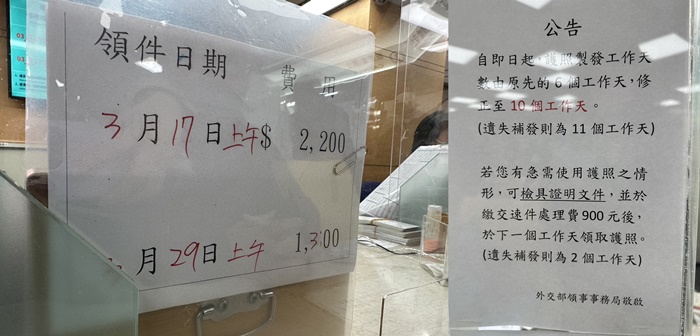 領件日期
費 用
3月17日上午$ 2,200
月29日上午 1,300
公告
自即日起,護照製發工作天
數由原先的6個工作天,修
正至10個工作天。
(遺失補發則為11個工作天)
若您有急需使用護照之情
形,可檢具證明文件,並於
繳交速件處理費900元後,
於下一個工作天領取護照。
(遺失補發則為2個工作天)
外交部領事事務局敬啟